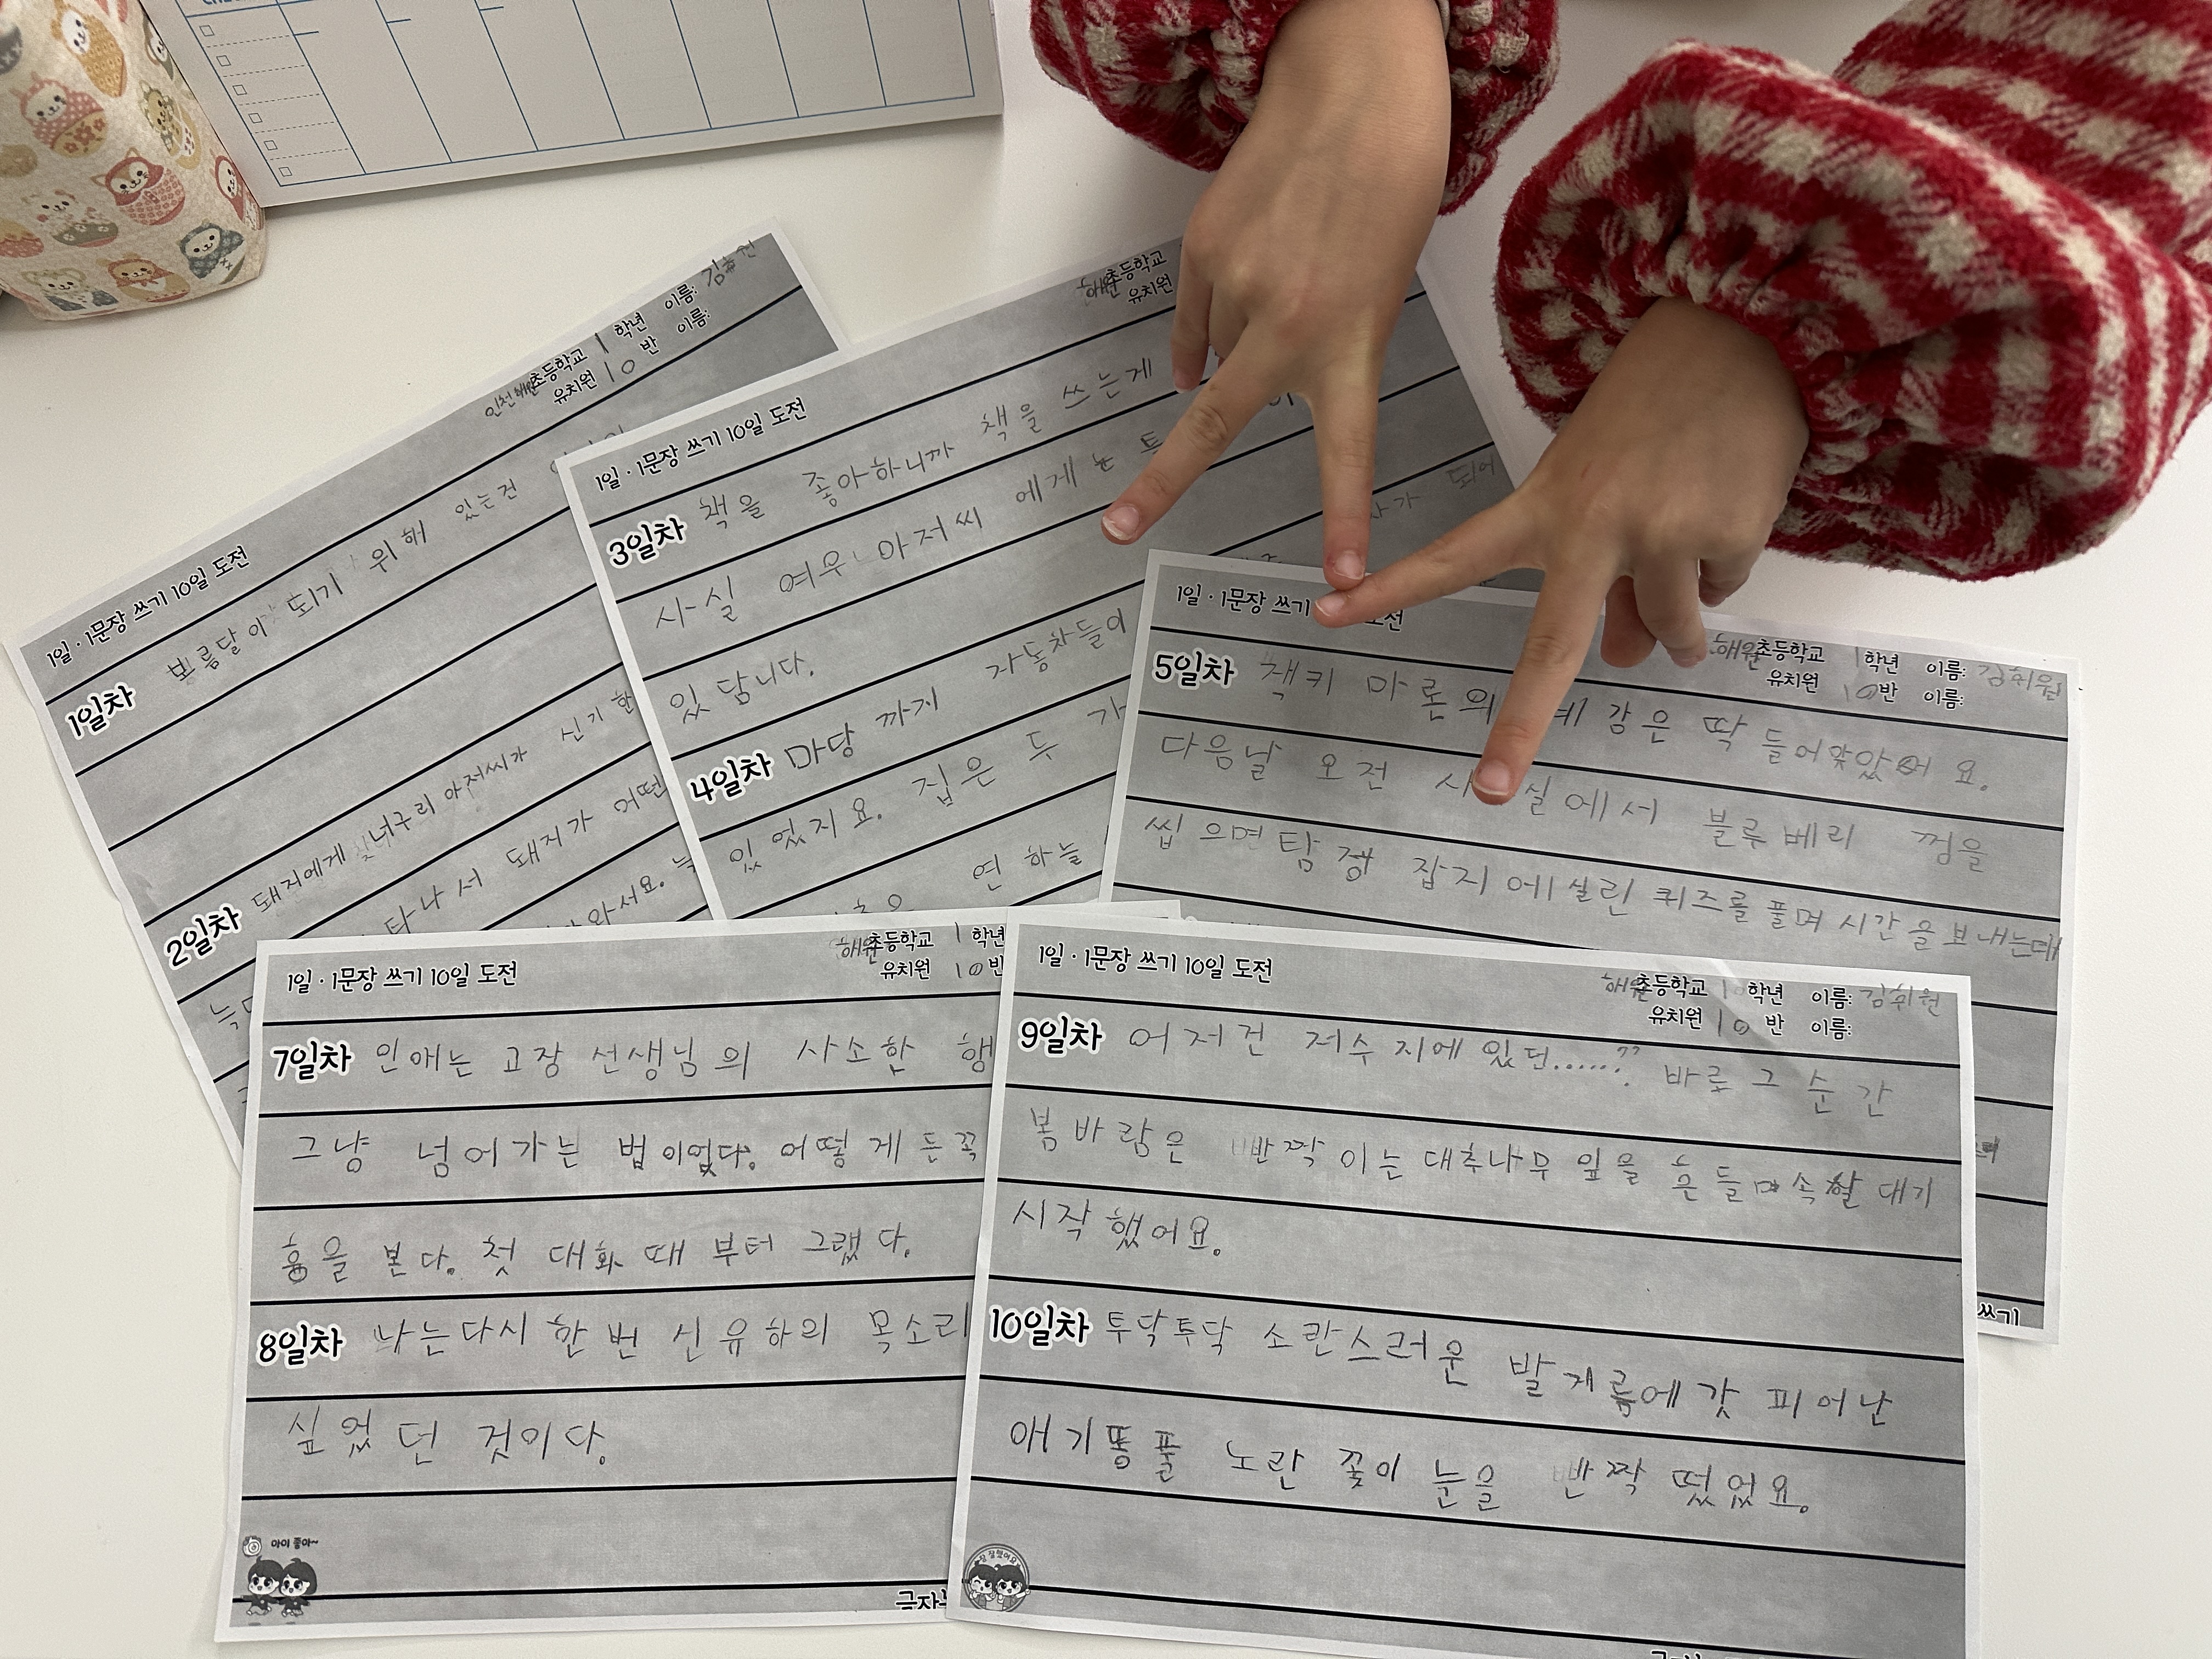 1일·1문장 쓰기 10일 도전
초등학교 1 학년 이름:
유치원 10 반 이름:
1일차 보름달이 되기 위해 있는건
2일차 돼지에게 너구리 아저씨가 신기한
타나서 돼지가 어떤
1일·1문장 쓰기 10일 도전
해원초등학교
유치원
3일차 책을 좋아하니까 책을 쓰는게
사실 여우 아저씨 에게는
있답니다.
4일차 마당 까지 자동차들이
있었지요. 집은 두
연 하늘
1일·1문장 쓰기 도전
해원초등학교 1 학년 이름: 김휘원
유치원 10반 이름:
5일차 책키 마론의 예감은 딱 들어맞았어요.
다음날 오전 실에서 블루베리 껌을
씹으면 탐정 잡지에 실린 퀴즈를 풀며 시간을 보내는데
쓰기
1일·1문장 쓰기 10일 도전
해원초등학교 1 학년
유치원 10반
7일차 인애는 교장 선생님의 사소한 행
그냥 넘어가는 법이었다. 어떻게든 꼭
흉을 본다. 첫 대화 때부터 그랬다.
8일차 나는다시 한번 신유하의 목소리
싶었던 것이다.
아이 좋아~
1일·1문장 쓰기 10일 도전
해원초등학교 1 학년 이름: 김휘원
유치원 10 반 이름:
9일차 어저건 저수지에 있던......??  바로 그 순간
봄바람은 빤짝이는 대추나무 잎을 흔들며 속할대기
시작했어요.
10일차 투닥투닥 소란스러운 발게름에 갓 피어난
애기똥풀 노란 꽃이 눈을 빤짝 떴었요.